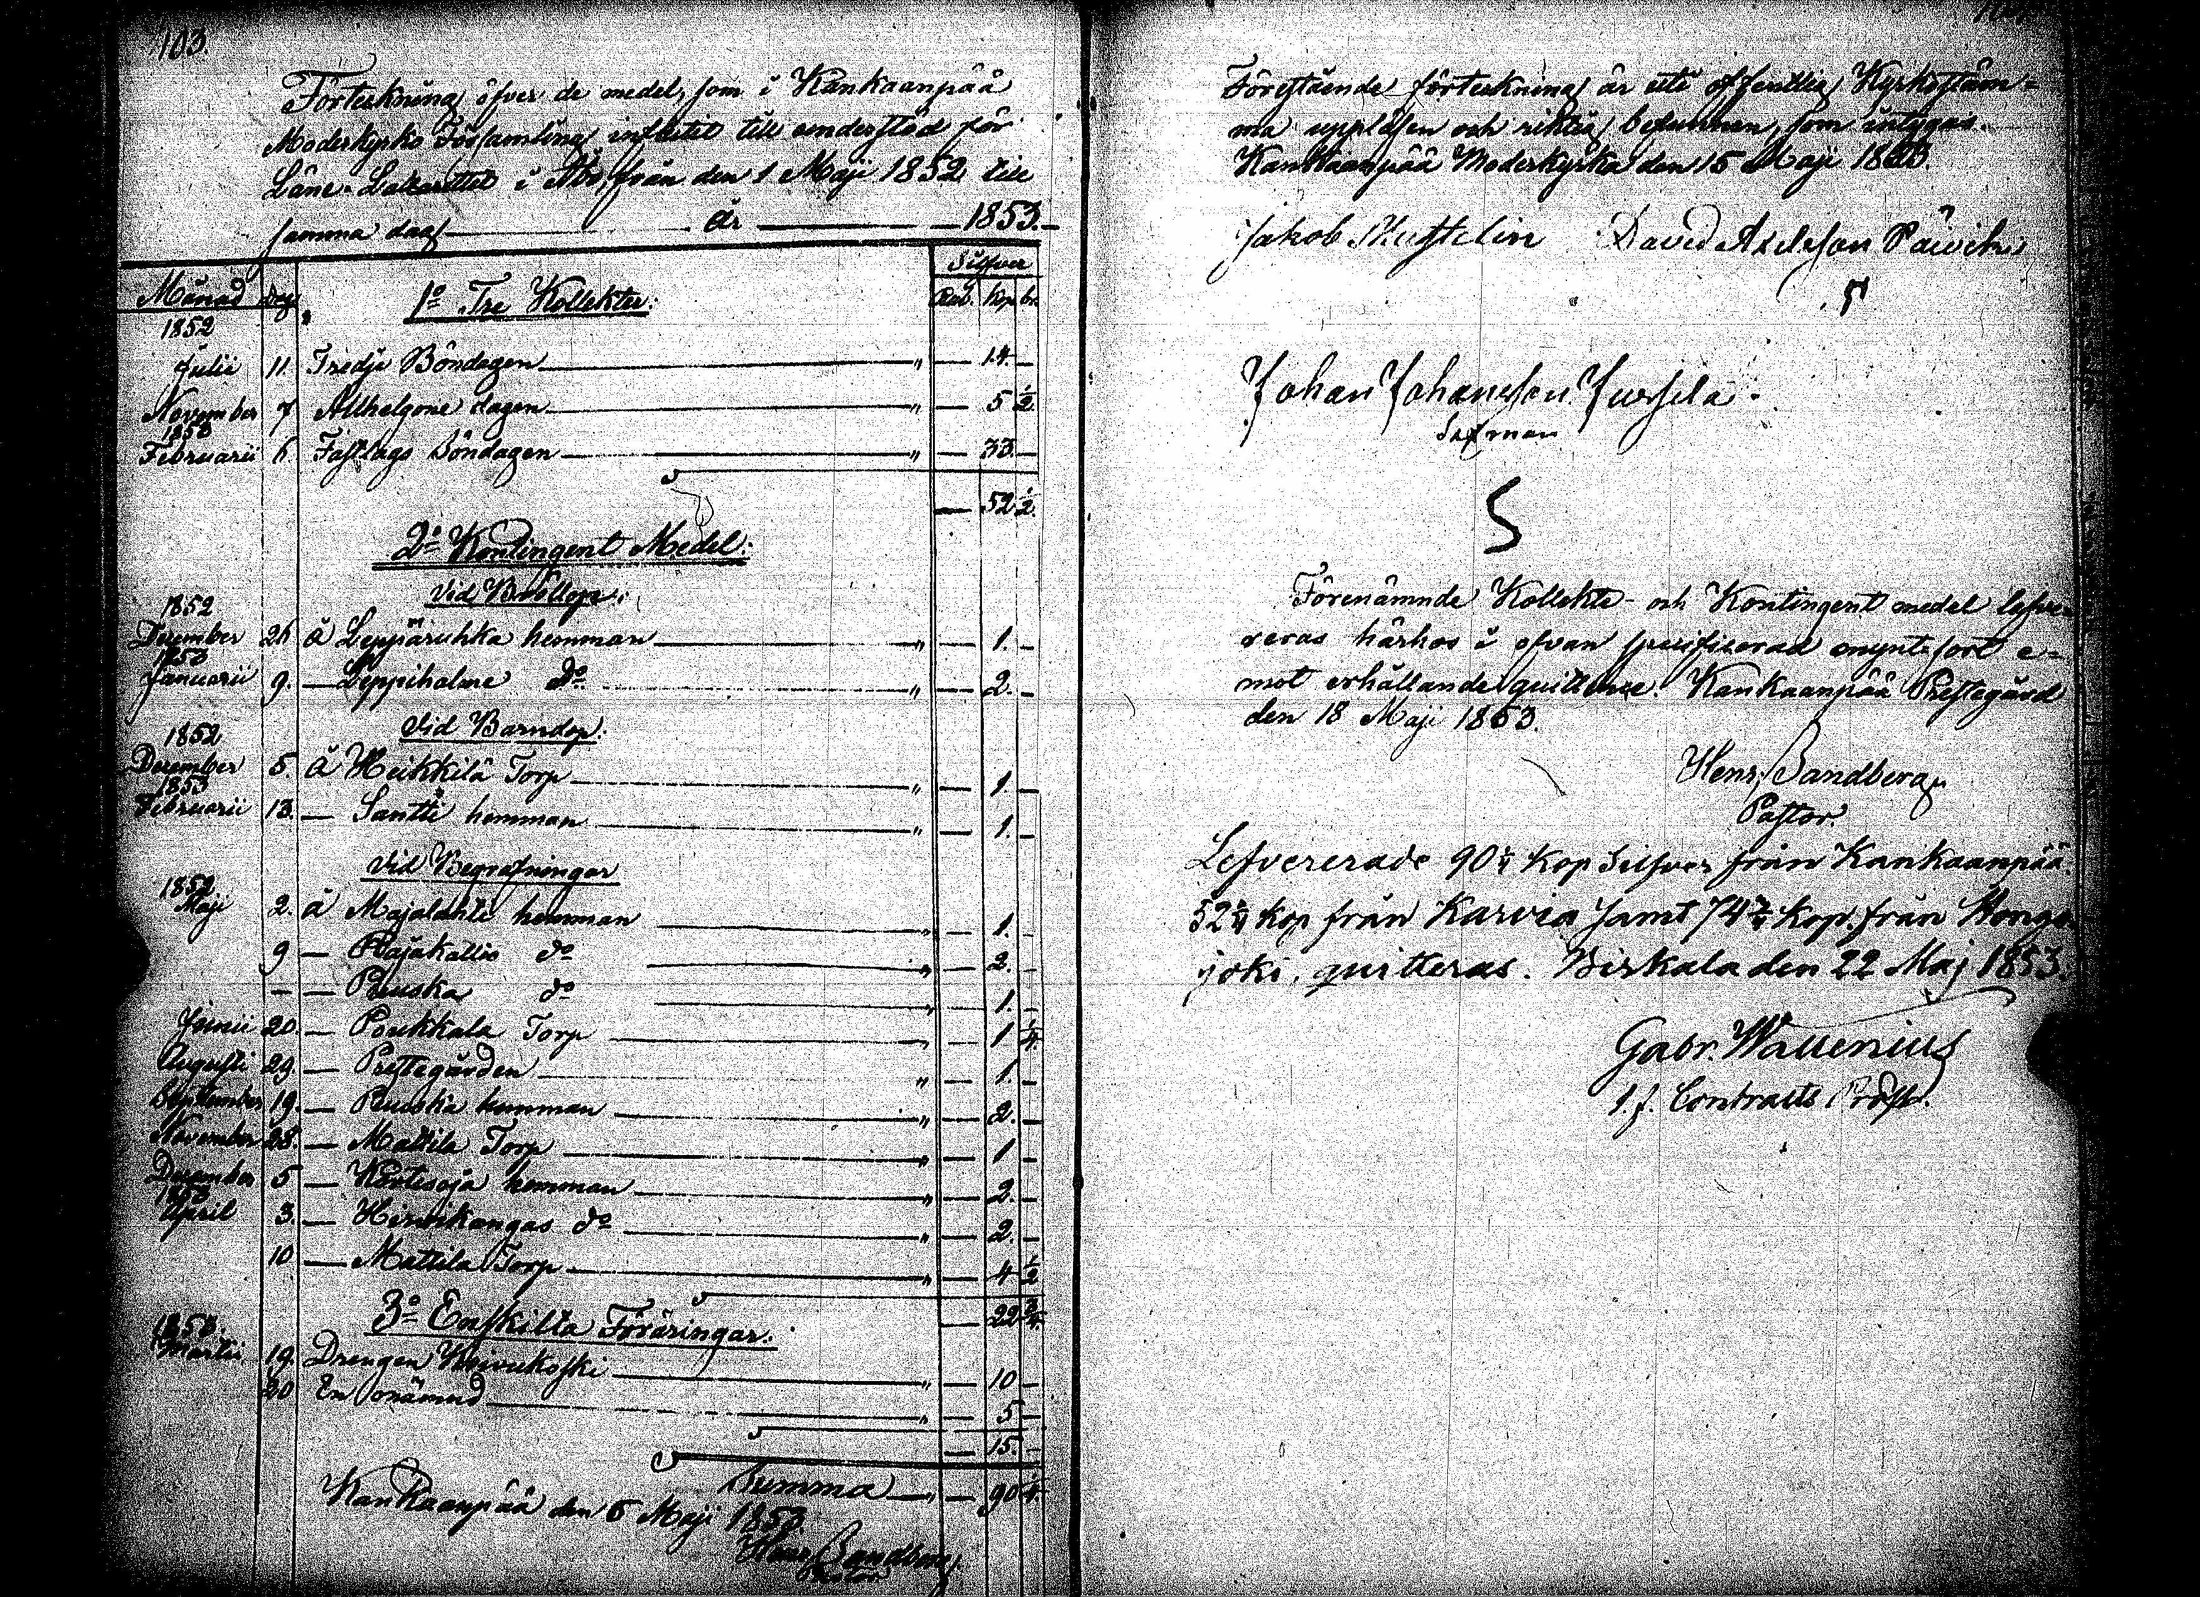 103.
Förteckning öfver de medel, som i Kankaanpää
Moderkyrko Församling influtit till understöd för
Läns-Lazarettet i Åbo från den 1 Maji 1852 till
samma dag år 1853.
Månad Dag 1o Tre Kollekter: Silfver
Rub. Kop. br.
1852
Julii 11. Tredje Böndagen " — 14. —
November 7 Allhelgone dagen " — 5 1/2
1853
Februarii 6. Fastlags Söndagen " — 33. —
— 52 1/2.
2o Kontingent Medel:
Vid Bröllop:
1852
December 26 à Leppäruhka hemman " — 1. —
1853
Januarii 9. — Leppihalme do " — 2. —
Vid Barndop:
1852
December 5. à Heikkilä Torp " — 1. —
1853
Februarii 13. — Santti hemman " — 1. —
Vid Begrafningar
1852
Maji 2. à Majalahti hemman " — 1. —
9 — Rajakallio do " — 2. —
— — Peuska do " — 1. —
Junii 20. — Poukkala Torp " — 1 1/4
Augusti 29. — Prestegården " — 1. —
September 19. — Peuska hemman " — 2. —
November 28. — Mattila Torp " — 1 —
December 5 — Kertisoja hemman " — 2. —
1853
April 3. — Hirvikangas do " — 2. —
10 — Mattila Torp " — 4 1/2
— 22 3/4.
3o Enskilta Föräringar:
1853
Martii 19. Drengen Koivukoski " — 10 —
20 En onämnd " — 5 —
— 15. —
Summa " — 90 1/4.
Kankaanpää den 6 Maji 1853.
Henr. Sandberg
Pastor
Förestående förteckning är uti offentlig Kyrkostäm-
ma uppläsen och riktig befunnen, som intygas.
Kankaanpää Moderkyrka den 15 Maji 1853.
Jakob Kustelin David Axelsson Päivike
Johan Johansson Jussila.
Sexman
S
Förenämnde Kollekte- och Kontingent medel lefve-
reras härhos i ofvan specificerad myntsort e-
mot erhållande quittence. Kankaanpää Prestegård
den 18 Maji 1853.
Henr. Sandberg
Pastor.
Lefvererade 90 1/4 Kop Silfver från Kankaanpää.
52 1/4 Kop från Karvia samt 74 2/4 Kop. från Honga
joki, quitteras. Birkala den 22 Maj 1853.
Gabr. Wallenius
t. f. Contracts Prost.